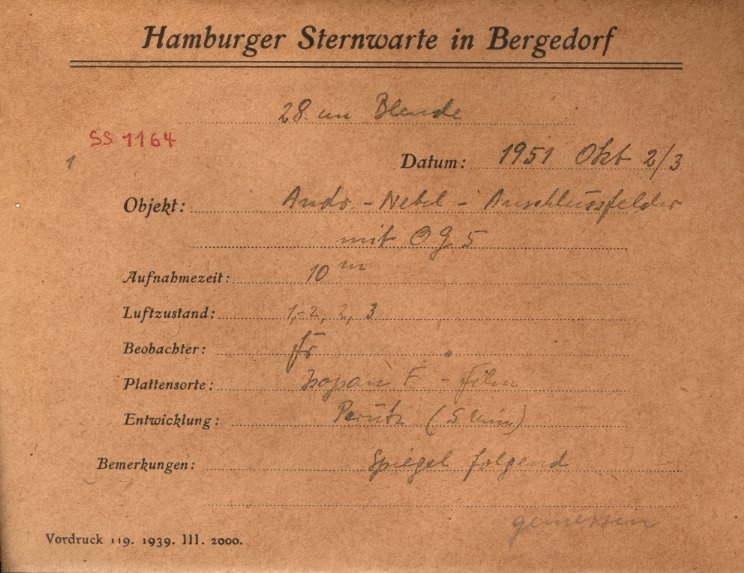 Hamburger Sternwarte in Bergedorf
28 cm Blende
SS 1164
1
Datum: 1951 Okt 2/3
Objekt: Andr. - Nebel - Anschlussfelder
mit OG 5
Aufnahmezeit: 10 m
Luftzustand: 1-2, 2, 3
Beobachter:
Plattensorte: Isopan F - Film
Entwicklung: Perutz (5 Min)
Bemerkungen: Spiegel folgend
gemessen
Vordruck 119. 1939. III. 2000.